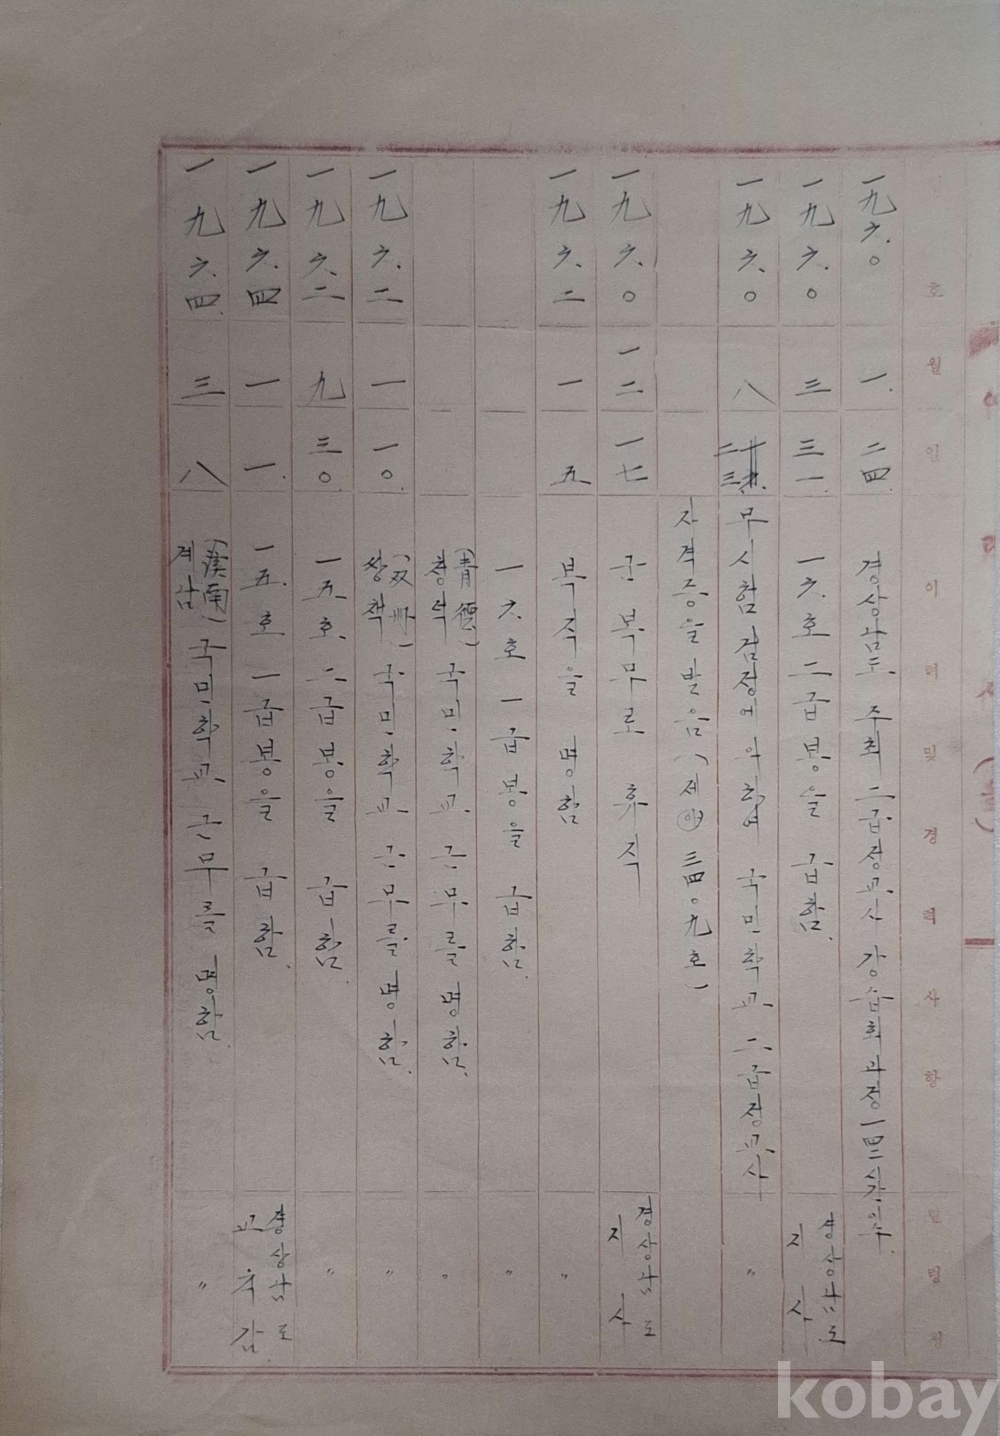 호 월 일 이 력 및 경 력 사 항 발 령 청
一九六〇 一 二四 경상남도 주최 二급정교사 강습회과정 一四二시간 이수
一九六〇 三 三一 一六호 二급봉을 급함 경상남도지사
一九六〇 八 二三 무시험검정에 의하여 국민학교 二급정교사 〃
자격증을 받음 (제 三四〇九호)
一九六〇 一二 一七 군 복무로 휴직 경상남도지사
一九六二 一 五 복직을 명함 〃
一六호 一급봉을 급함 〃
청덕(靑德) 국민학교 근무를 명함 〃
一九六二 一 一〇 쌍책(双冊) 국민학교 근무를 명함 〃
一九六二 九 三〇 一五호 二급봉을 급함 〃
一九六四 一 一 一五호 一급봉을 급함 경상남도교육감
一九六四 三 八 계남(溪南) 국민학교 근무를 명함 〃
kobay